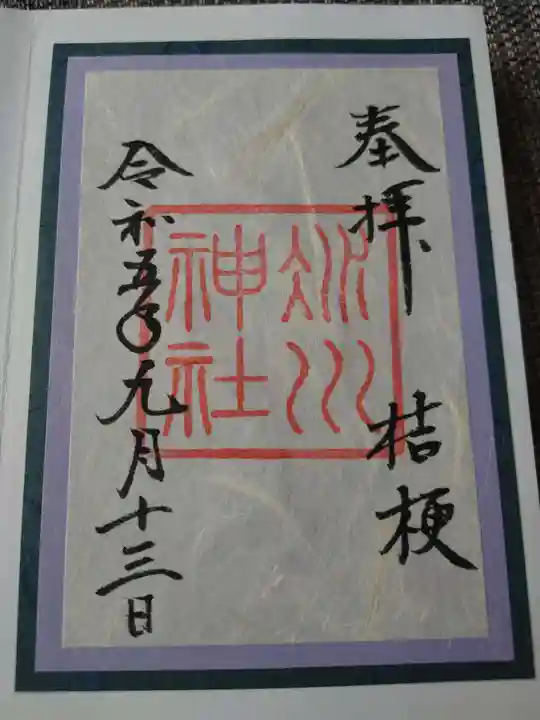 奉拝 桔梗
冰川
神社
令和五年九月十三日